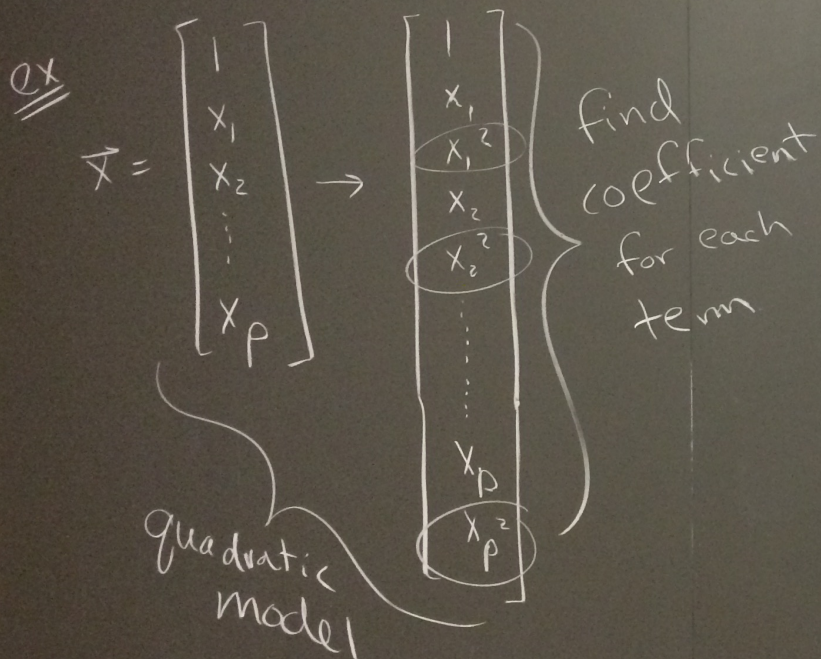 ex
x⃗ =
1
x₁
x₂
⋮
xₚ
→
1
x₁
x₁²
x₂
x₂²
⋮
xₚ
xₚ²
find
coefficient
for each
term
quadratic
model